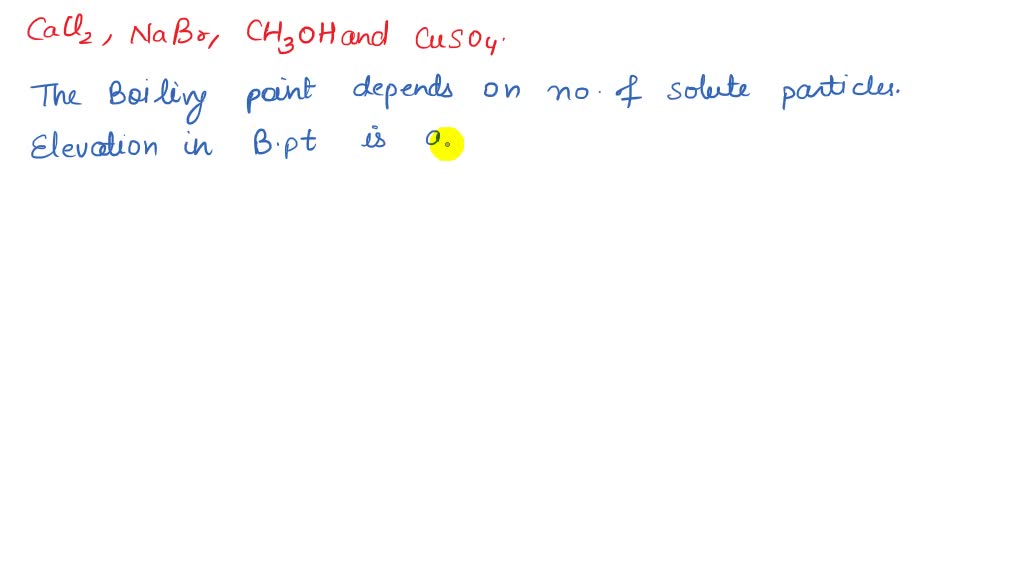 CaCl2, NaBr, CH3OH and CuSO4.
The Boiling point depends on no. of solute particles.
Elevation in B.pt is